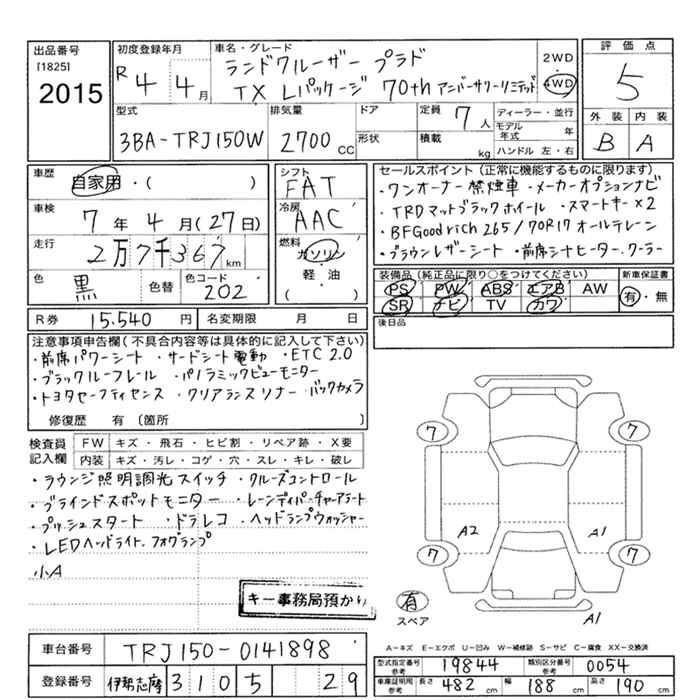 出品番号
[1825]
2015
初度登録年月
R 4年 4月
車名・グレード
ランドクルーザー プラド
TX Lパッケージ 70th アニバーサリーリミテッド
2WD
・
4WD
評価点
5
外装 内装
B A
型式
3BA-TRJ150W
排気量
2700cc
ドア
形状
定員 7人
積載 kg
ディーラー・並行
モデル年式 年
ハンドル 左・右
車歴 自家用・( )
車検 7年4月(27日)
走行 2万7千367km
色 黒 色替 色コード 202
シフト FAT
冷房 AAC
燃料 ガソリン
軽・油
( )
セールスポイント(正常に機能するものに限ります)
・ワンオーナー 禁煙車 ・メーカーオプションナビ
・TRDマットブラックホイール ・スマートキー×2
・BFGoodrich 265/70R17 オールテレーン
・ブラウンレザーシート ・前席シートヒーター、クーラー
装備品(純正品に限り○をつけてください) 新車保証書
PS PW ABS エアB AW
SR ナビ TV カワ
有・無
後日品
R券 15.540円 名変期限 月 日
注意事項申告欄(不具合内容等は具体的に記入して下さい)
・前席パワーシート ・サードシート電動 ・ETC 2.0
・ブラックルーフレール ・パノラミックビューモニター
・トヨタセーフティセンス ・クリアランスソナー ・バックカメラ
修復歴 有 〔箇所 〕
検査員記入欄
FW キズ・飛石・ヒビ割・リペア跡・X要
内装 キズ・汚レ・コゲ・穴・スレ・キレ・破レ
・ラウンジ照明調光スイッチ ・クルーズコントロール
・ブラインドスポットモニター ・レーンディパーチャーアラート
・プッシュスタート ・ドラレコ ・ヘッドランプウォッシャー
・LEDヘッドライト、フォグランプ
小A
キー事務局預かり
7 7
A2 A1
7 7
有
スペア
A1
A-キズ E-エクボ U-凹み W-補修跡 S-サビ C-腐食 XX-交換済
車台番号 TRJ150-0141898
登録番号 伊勢志摩 310 5 29
型式指定番号 参考 19844 類別区分番号 参考 0054
車庫証明用 参考 長さ 482cm 幅 188cm 高さ 190cm